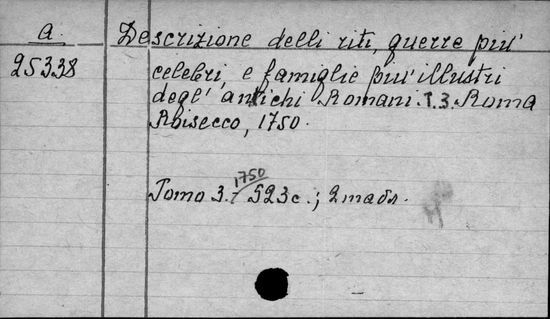 a.
Descrizione delli riti, guerre piu'
25338
celebri, e famiglie piu' illustri
degl' antichi Romani. T.3. Roma
Abisecco, 1750.
1750
Tomo 3. 523 c.; 2